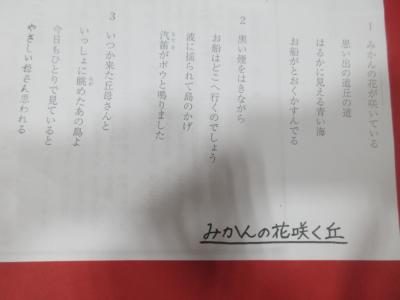 1 みかんの花が咲いている
思い出の道丘の道
はるかに見える青い海
お船がとおくかすんでる
2 黒い煙をはきながら
お船はどこへ行くのでしょう
波に揺られて島のかげ
汽笛がボウと鳴りました
3 いつか来た丘母さんと
いっしょに眺めたあの島よ
今日もひとりで見ていると
やさしい母さん思われる
みかんの花咲く丘